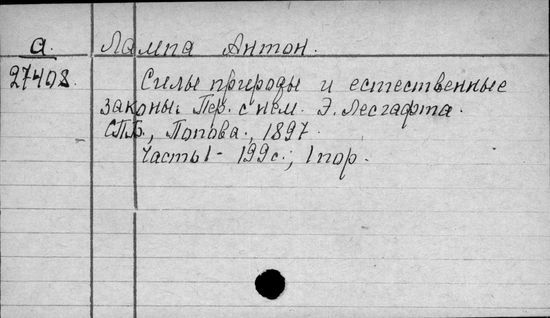 а. Лампа Антон.
27408 Силы природы и естественные
законы. Пер. с нем. Э. Лесгафта.
СПБ., Попова, 1897.
Часть I - 199с.; 1 пор.